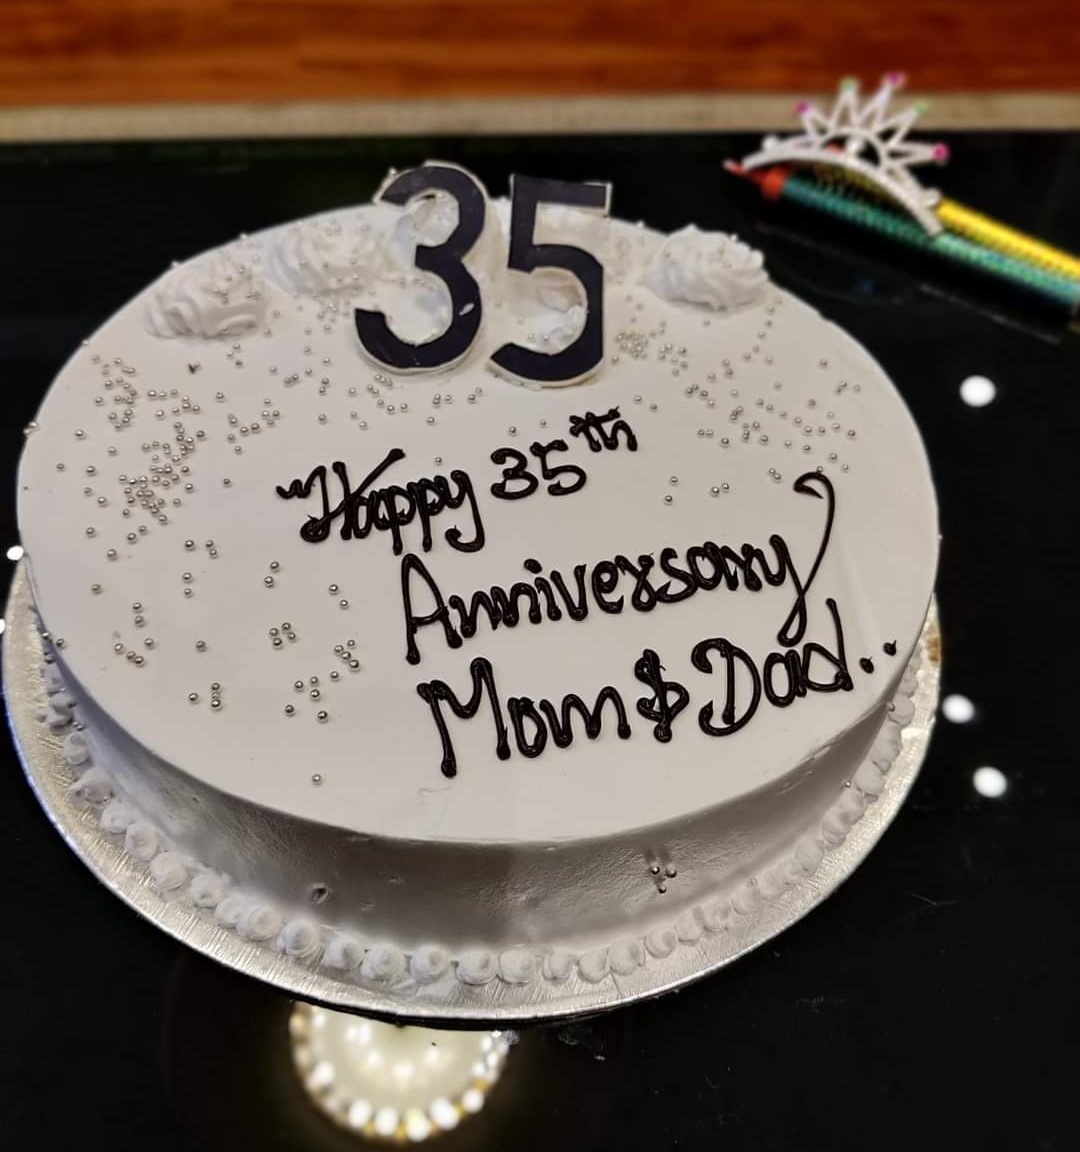 35
"Happy 35th
Anniversary
Mom & Dad..